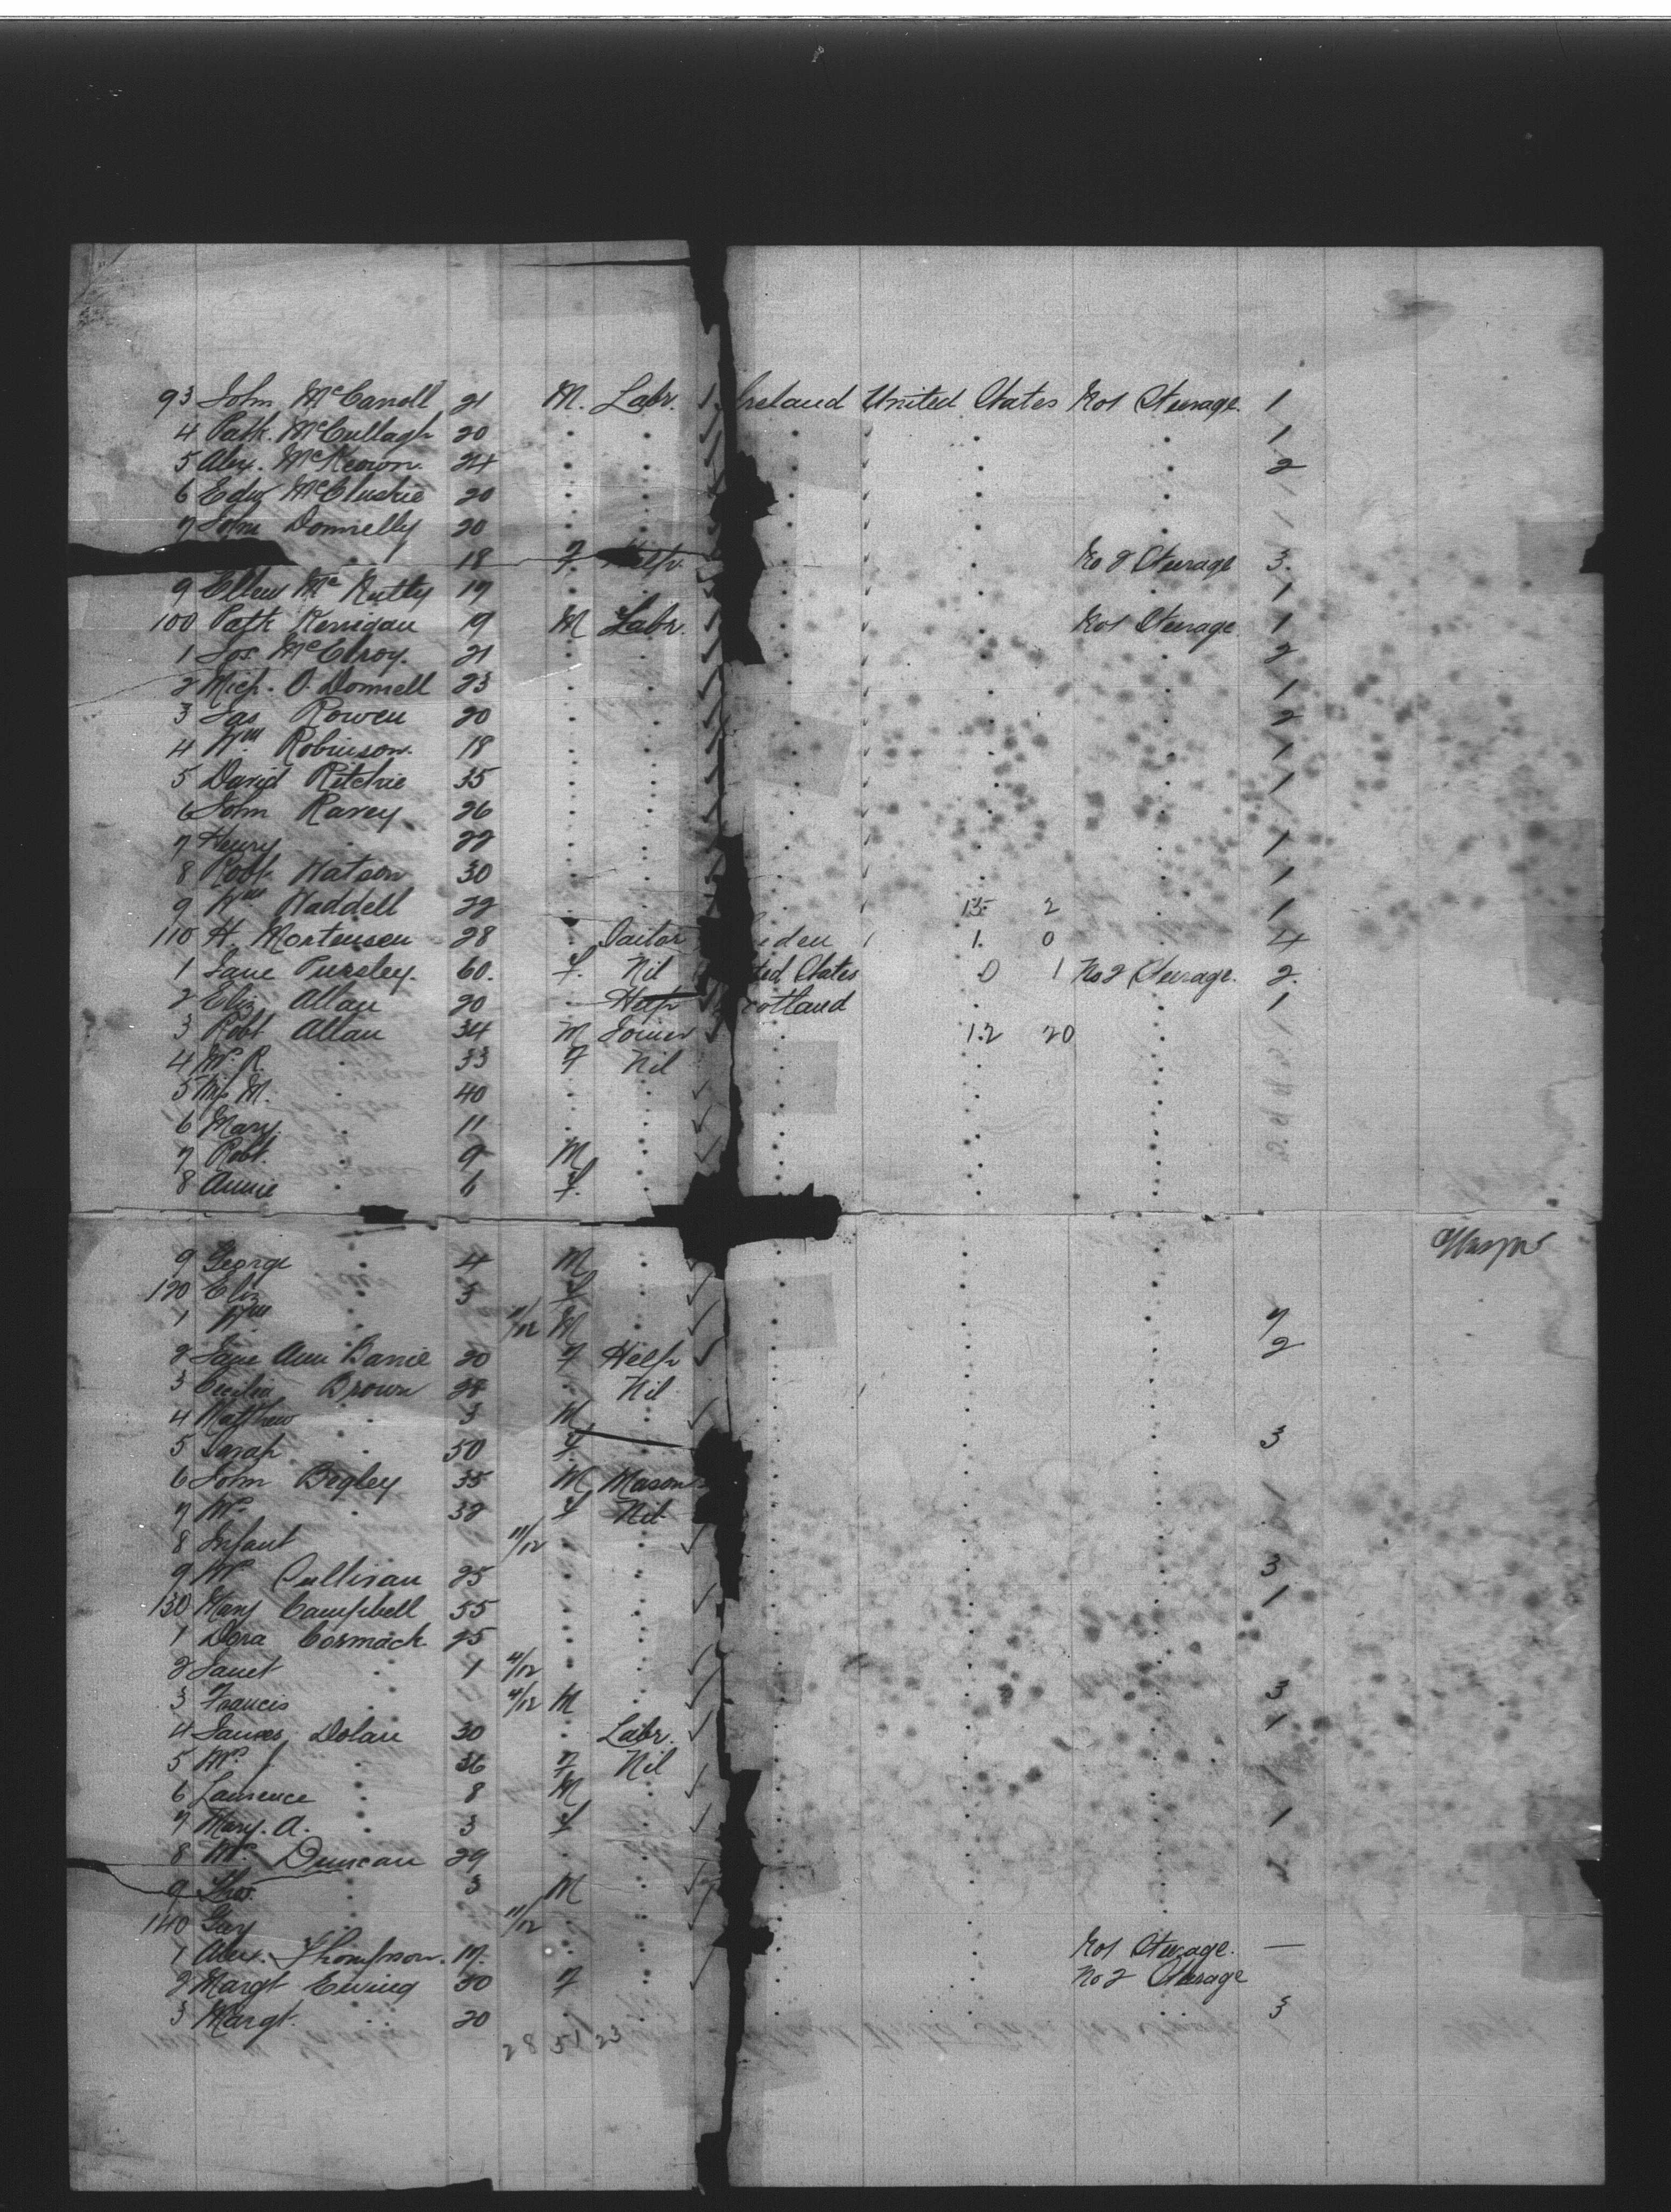 93 John McCarroll 21 M. Labr. 1 Ireland United States No 1 Steerage 1
4 Patk. McCullagh 20 " " " " " 1
5 Alex. McKeown 24 " " " " " 2
6 Edw McCluskie 20 " " " " " 1
7 John Donnelly 20 " " " 1
18 F. Help No 2 Steerage 3
9 Ellen McNulty 19 " " 1
100 Patk Kerrigan 19 M Labr. No 1 Steerage 1
1 Jos. McElroy. 21 " " " 2
2 Mich. O'Donnell 23 " " " 1
3 Jas Rowen 20 " " " 2
4 Wm Robinson. 18 " " " 1
5 David Ritchie 35 " " " 1
6 John Ravey 26 " " "
7 Henry " 22 " " " 1
8 Robt. Watson 30 " " " 1
9 Wm Waddell 22 " " 15 2 " 1
110 H. Mortensen 28 " Sailor eden 1. 0 " 4
1 Jane Pursley. 60. F. Nil ted States 0 1 No 2 Steerage. 2.
2 Eliz Allan 20 " Help Scotland " 1
3 Robt Allan 34 M Joiner " 12 20 "
4 Mrs R. " 33 F Nil " " "
5 M. " 40 " " " " "
6 Mary " 11 " " " " "
7 Robt. " 9 M " " " "
8 Annie " 6 F. " " " "
9 George " 4 M " " " "
120 Eliz " 3 F " " " "
1 Wm " 11/12 M " " " " 7
2 Jane Ann Barrie 20 F Help " " " 2
3 Cecilia Brown 28 " Nil " " "
4 Matthew " 3 M " " " "
5 Sarah " 50 F " " " " 3
6 John Begley 35 M Mason " " " 1
7 Mrs " 32 F Nil " " "
8 Infant 11/12 " " " " "
9 Mrs Sullivan 25 " " " " " 3
130 Mary Campbell 55 " " " " " 1
1 Dora Cormack 25 " " " " "
2 Janet " 1 4/12 " " " " "
3 Francis " 4/12 M " " " " 3
4 James Dolan 30 " Labr. " " " 1
5 Mrs J " 36 F Nil " " "
6 Laurence " 8 M " " " "
7 Mary. A. " 3 F " " " " 1
8 Mrs Duncan 29 " " " " "
9 Thos. " 3 M " " " "
140 Guy " 11/12 " " " " "
1 Alex. Thompson. 17. " " " " No 1 Steerage. —
2 Margt Ewing 50 F " " " No 2 Steerage
3 Margt. " 20 " " " " " 3
28 51 23